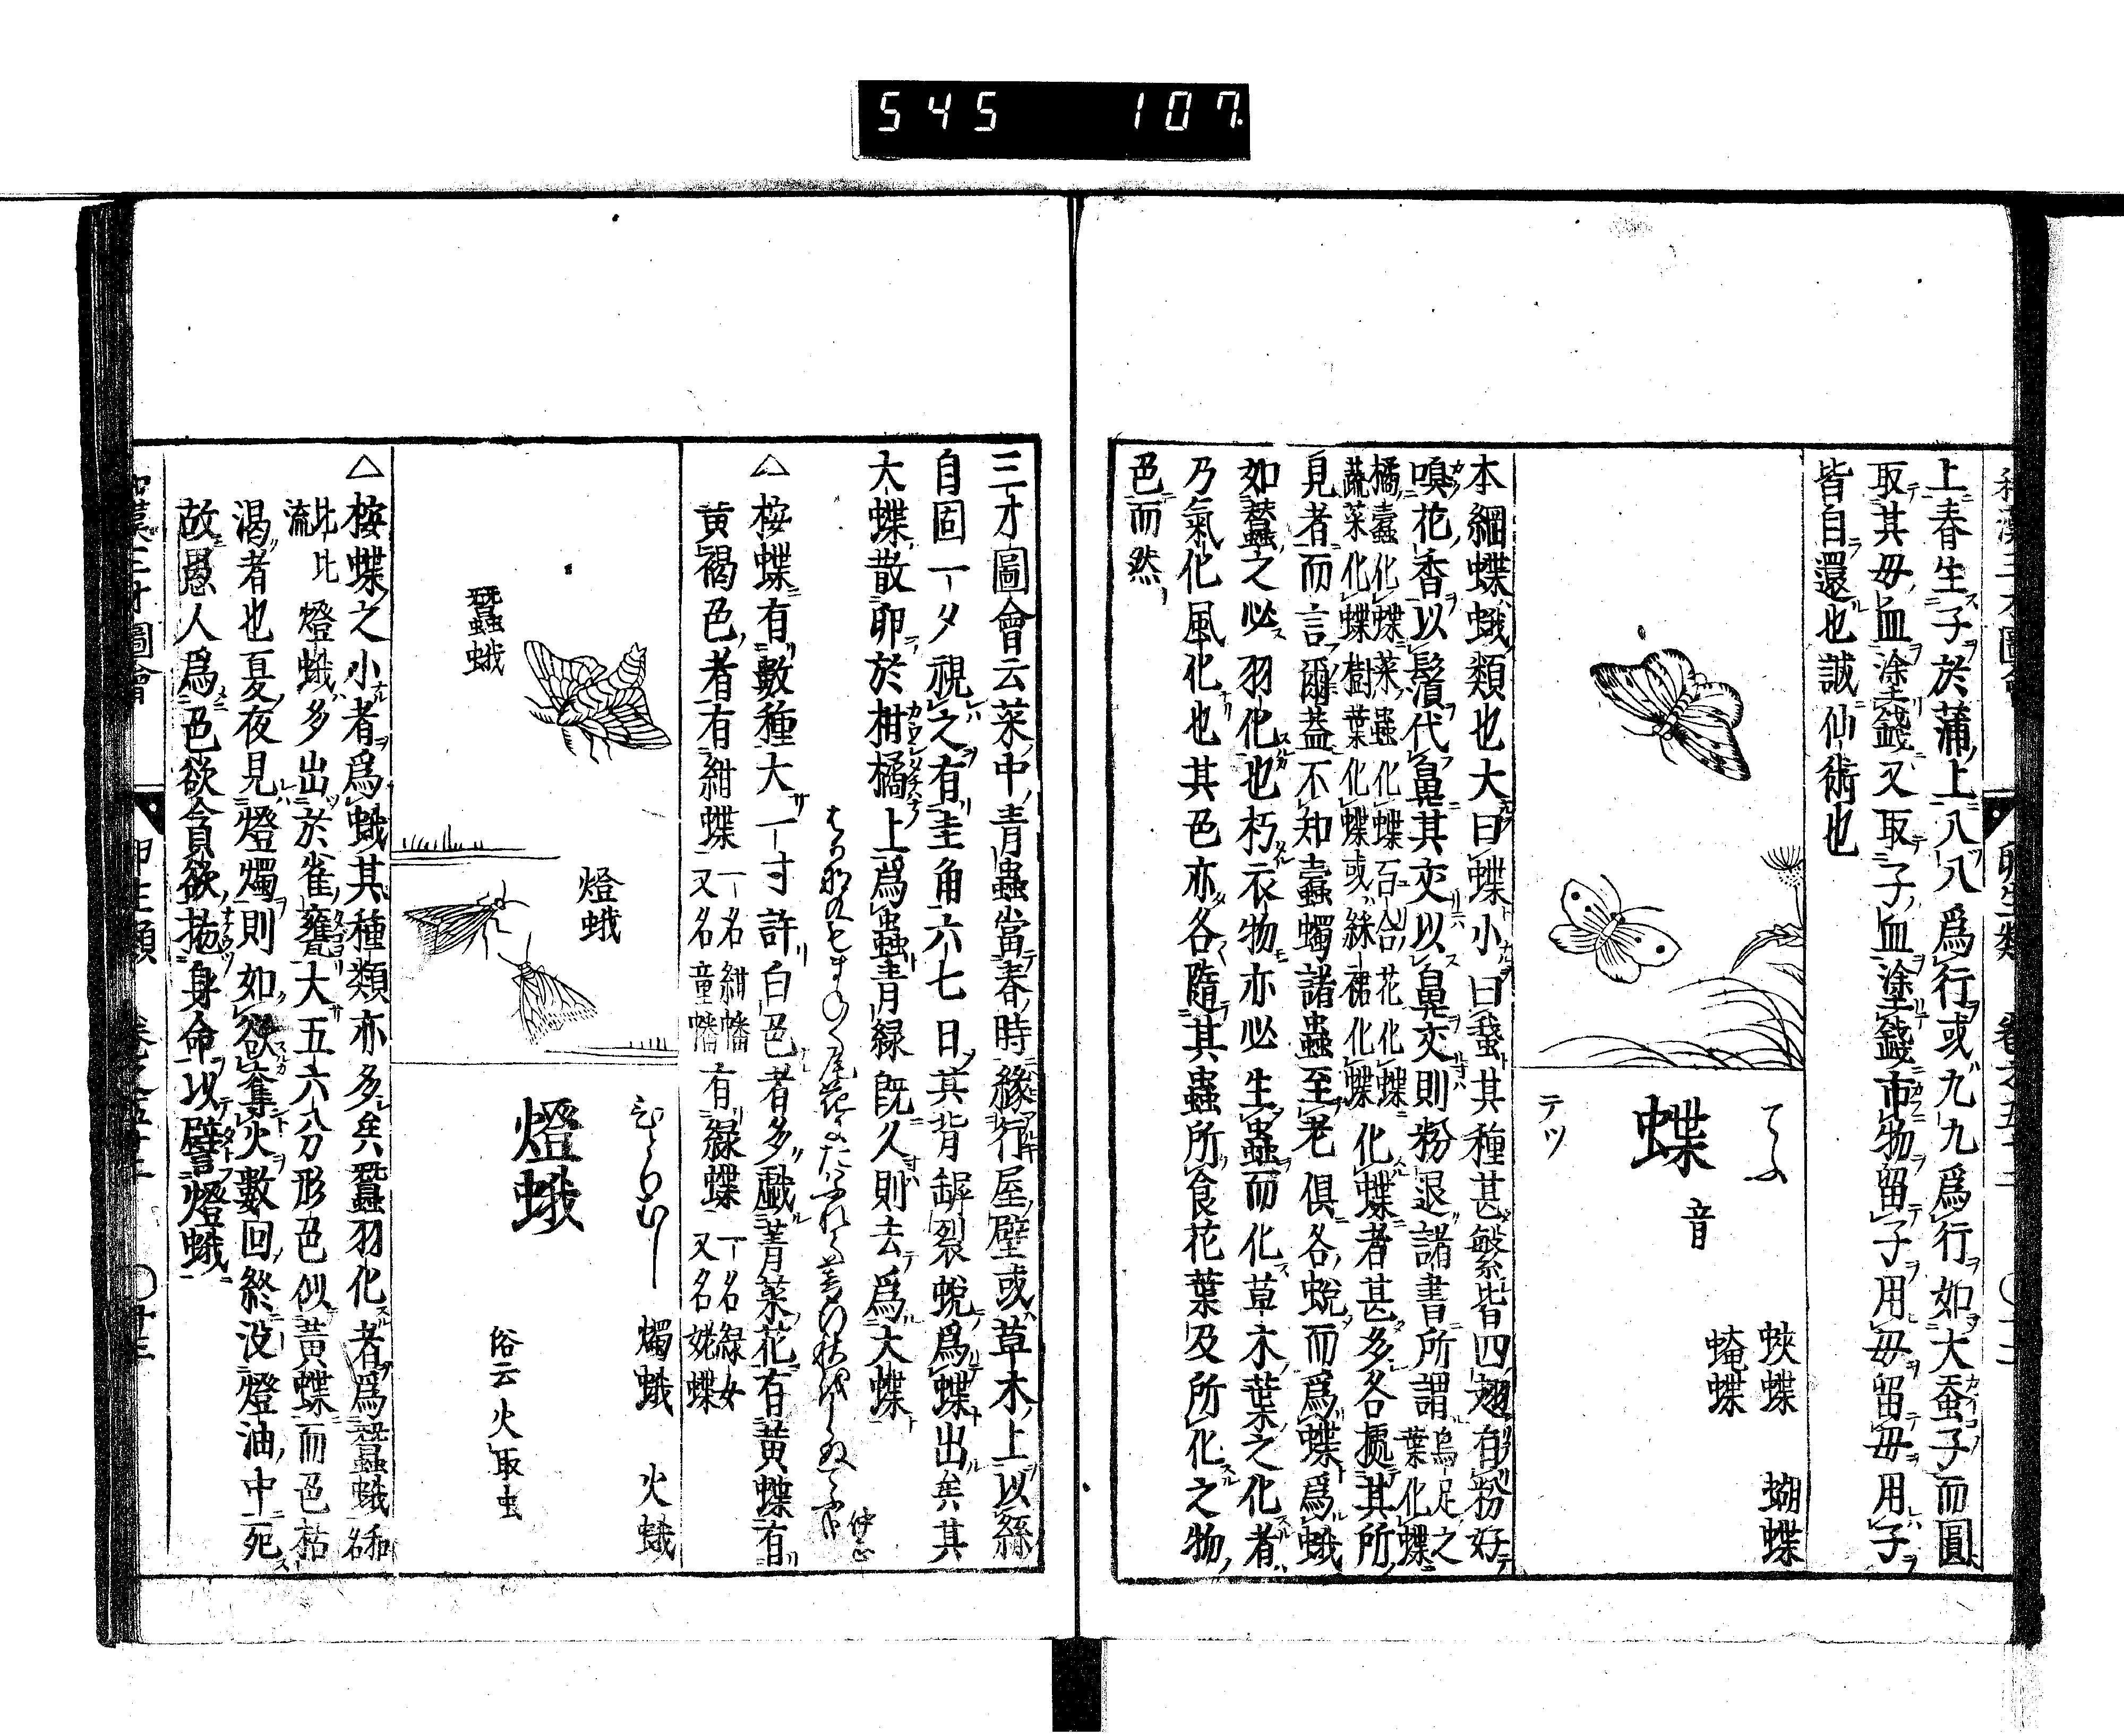 545 107
卵生類
上春生子於蒲上八八爲行或九九爲行如大蚕子而圓
取其毋血塗錢又取子血塗錢市物留子用毋留毋用子
皆自還也誠仙術也
蝶
音
テツ
てふ
蛺蝶 蝴蝶
蛺蝶
本綱蝶蛾類也大曰蝶小曰蛾其種甚繁皆四翅有粉好
嗅花香以鬚代鼻其交以鼻交則粉退諸書所謂烏足之葉化蝶
橘蠹化蝶菜蟲化蝶百合花化蝶
蔬菜化蝶樹葉化蝶或綵裙化蝶
化蝶者甚多各據其所
見者而言爾葢不知蠹蠋諸蟲至老俱各蛻而爲蝶爲蛾
如蠶之必羽化也朽衣物亦必生蟲而化草木葉之化者
乃氣化風化也其色亦各隨其蟲所食花葉及所化之物
色而然
三才圖會云菜中青蟲當春時緣行屋壁或草木上以絲
自固一夕視之有圭角六七日其背罅裂蛻爲蝶出矣其
大蝶散卵於柑橘上爲蟲青緑既久則去爲大蝶
仲正
△桉蝶有數種大一寸許白色者多戱菁菜花有黄蝶有
黄褐色者有紺蝶
一名紺幡
又名童幡
有緑蝶
一名緑女
又名蝶
蠶蛾
燈蛾
燈蛾
ひとりむし
燭蛾 火蛾
俗云火取虫
△桉蝶之小者爲蛾其種類亦多矣蠶羽化者爲蠶蛾和名
比比流
燈蛾多出於雀甕大五六分形色似黄蝶而色枯
渴者也夏夜見燈燭則如欲奪火數回終没燈油中死
故愚人爲色欲貪欲拋身命以譬燈蛾